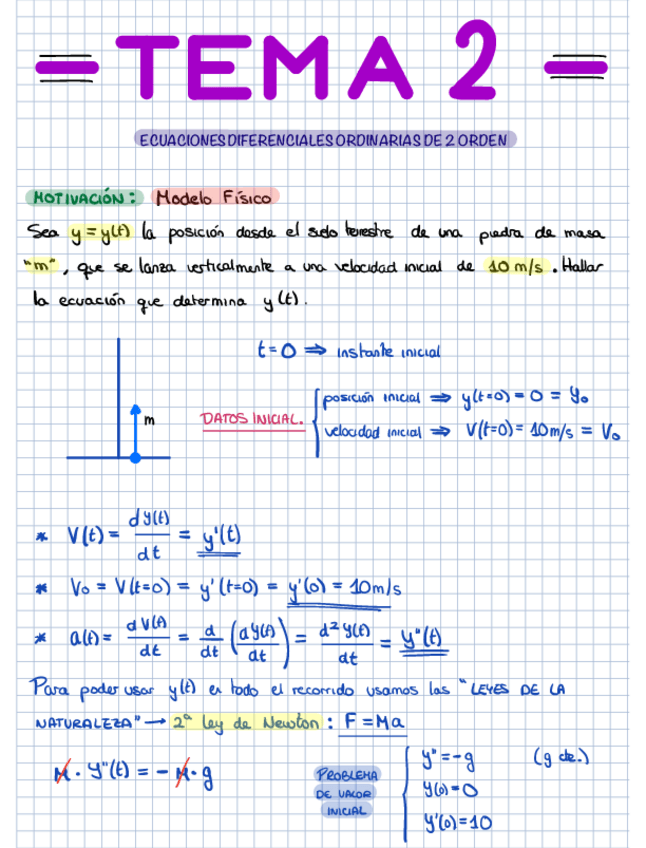 = TEMA 2 =
ECUACIONES DIFERENCIALES ORDINARIAS DE 2 ORDEN
MOTIVACIÓN: Modelo Físico
Sea y = y(t) la posición desde el suelo terrestre de una piedra de masa
"m", que se lanza verticalmente a una velocidad inicial de 10 m/s. Hallar
la ecuación que determina y(t).
t=0 ⇒ instante inicial
posición inicial ⇒ y(t=0) = 0 = y₀
m
DATOS INICIAL.
velocidad inicial ⇒ V(t=0) = 10m/s = V₀
* V(t) = dy(t)/dt = y'(t)
* V₀ = V(t=0) = y'(t=0) = y'(0) = 10m/s
* a(t) = dV(t)/dt = d/dt (dy(t)/dt) = d²y(t)/dt = y''(t)
Para poder usar y(t) en todo el recorrido usamos las "LEYES DE LA
NATURALEZA" → 2ª ley de Newton: F = Ma
M · y''(t) = - M · g
PROBLEMA
DE VALOR
INICIAL
y'' = -g (g cte.)
y(0) = 0
y'(0) = 10